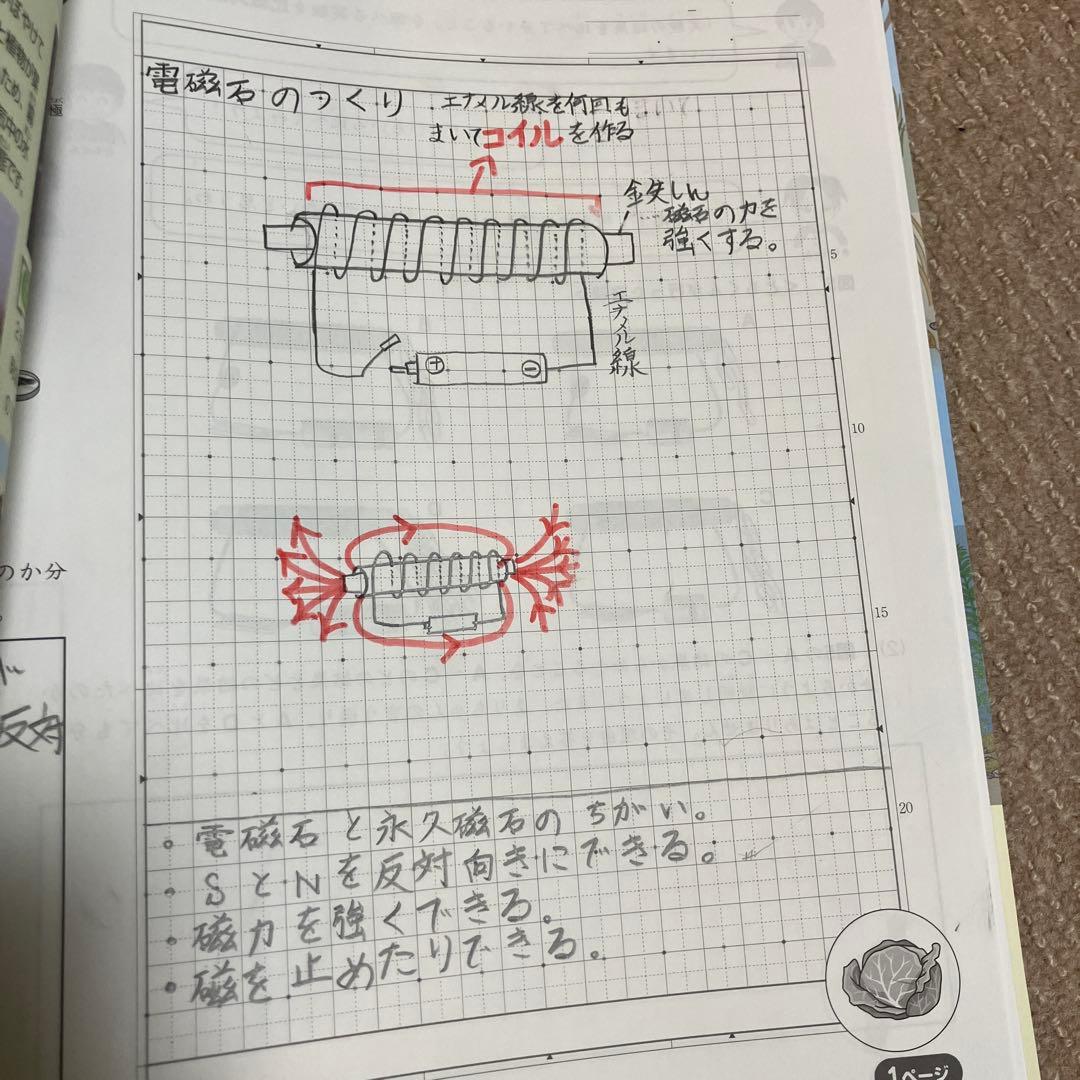 電磁石のつくり
エナメル線を何回も
まいてコイルを作る
鉄しん
磁石の力を
強くする。
エナメル線
+
−
5
10
15
20
・電磁石と永久磁石のちがい。
・SとNを反対向きにできる。
・磁力を強くできる。
・磁を止めたりできる。
1ページ
のか分
反対
極
(2)